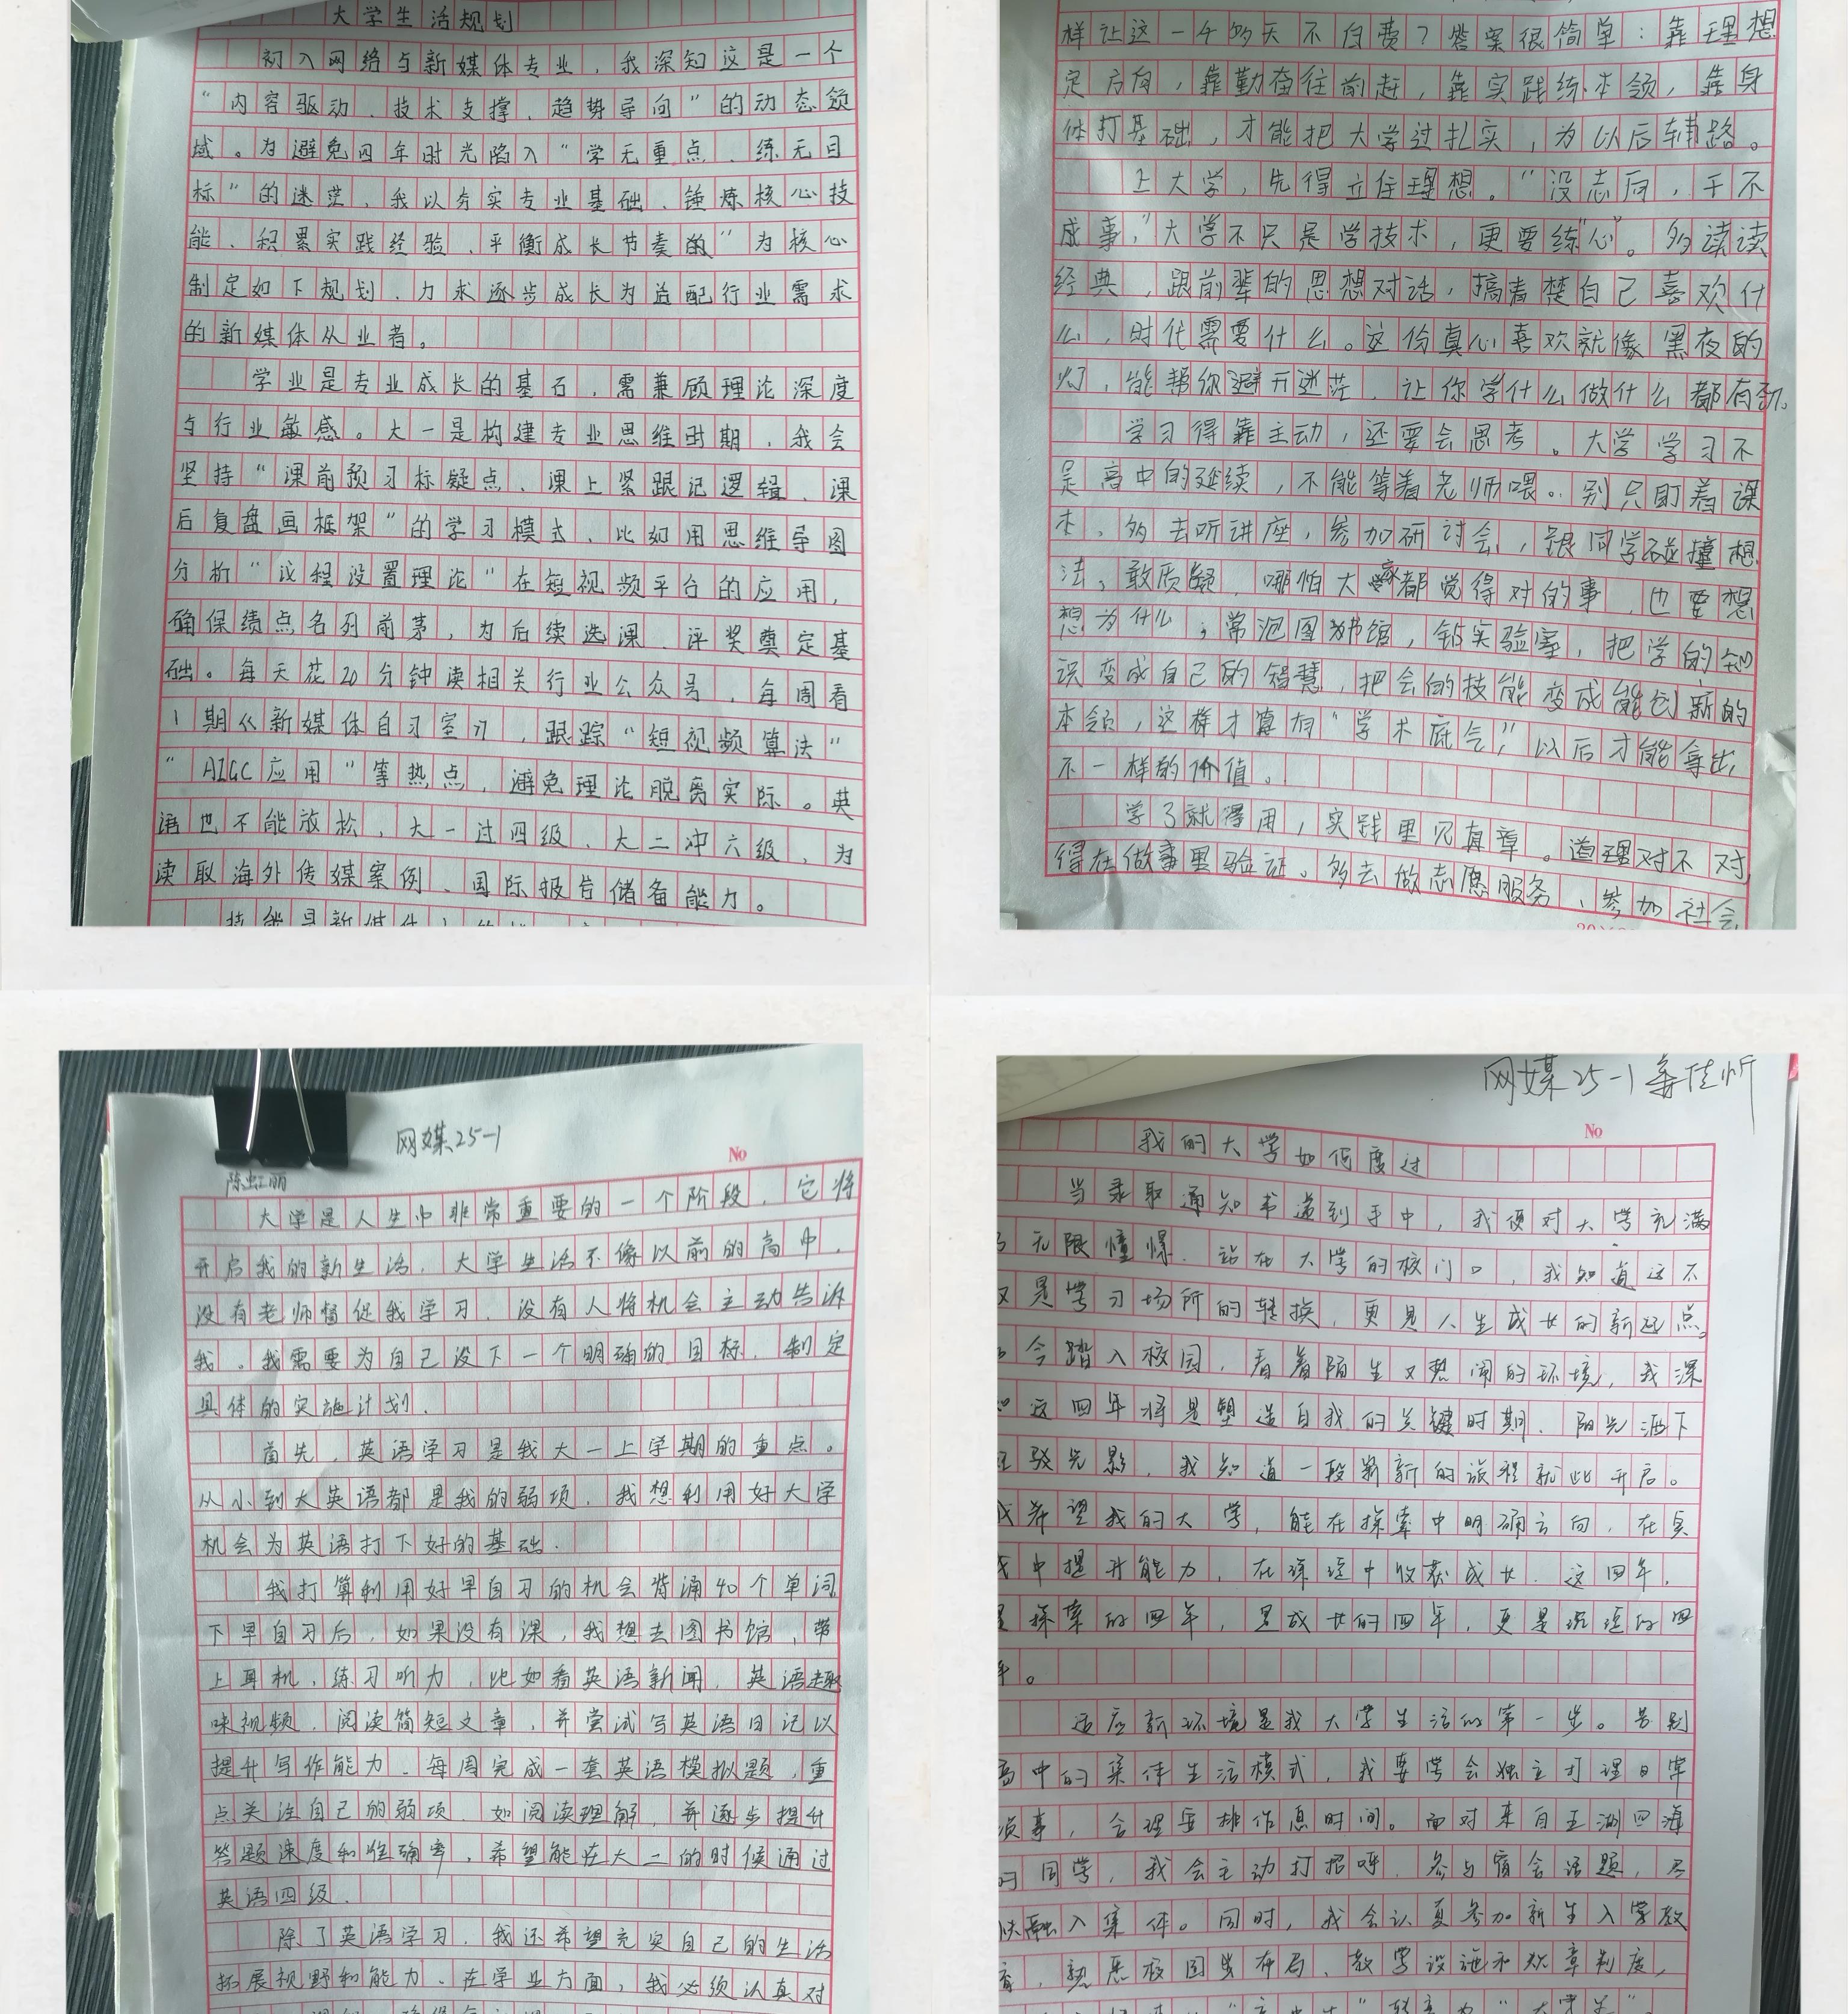 大学生活规划
初入网络与新媒体专业，我深知这是一个
“内容驱动、技术支撑、趋势导向”的动态领
域。为避免四年时光陷入“学无重点、练无目
标”的迷茫，我以夯实专业基础、锤炼核心技
能、积累实践经验、平衡成长节奏的”为核心
制定如下规划，力求逐步成长为适配行业需求
的新媒体从业者。
学业是专业成长的基石，需兼顾理论深度
与行业敏感。大一是构建专业思维时期，我会
坚持“课前预习标疑点、课上紧跟记逻辑、课
后复盘画框架”的学习模式，比如用思维导图
分析“议程设置理论”在短视频平台的应用，
确保绩点名列前茅，为后续选课、评奖奠定基
础。每天花20分钟读相关行业公众号，每周看
1期《新媒体自习室》，跟踪“短视频算法”
“AIGC应用”等热点，避免理论脱离实际。英
语也不能放松，大一过四级、大二冲六级，为
读取海外传媒案例、国际报告储备能力。
样让这一千多天不白费？答案很简单：靠理想
定方向，靠勤奋往前赶，靠实践练本领，靠身
体打基础，才能把大学过扎实，为以后铺路。
上大学，先得立住理想。“没志向，干不
成事，”大学不只是学技术，更要练“心”。多读读
经典，跟前辈的思想对话，搞清楚自己喜欢什
么，时代需要什么。这份真心喜欢就像黑夜的
灯，能帮你避开迷茫，让你学什么做什么都有劲。
学习得靠主动，还要会思考。大学学习不
是高中的延续，不能等着老师喂。别只盯着课
本，多去听讲座，参加研讨会，跟同学碰撞想
法；敢质疑，哪怕大家都觉得对的事，也要想
想为什么；常泡图书馆，钻实验室，把学的知
识变成自己的智慧，把会的技能变成能创新的
本领，这样才算有“学术底气，”以后才能拿出
不一样的价值。
学了就得用，实践里见真章。道理对不对，
得在做事里验证。多去做志愿服务、参加社会
网媒25-1
No
陈虹丽
大学是人生中非常重要的一个阶段，它将
开启我的新生活，大学生活不像以前的高中，
没有老师督促我学习，没有人将机会主动告诉
我。我需要为自己设下一个明确的目标，制定
具体的实施计划.
首先，英语学习是我大一上学期的重点。
从小到大英语都是我的弱项，我想利用好大学
机会为英语打下好的基础.
我打算利用好早自习的机会背诵40个单词
下早自习后，如果没有课，我想去图书馆，带
上耳机，练习听力，比如看英语新闻，英语趣
味视频，阅读简短文章，并尝试写英语日记以
提升写作能力、每周完成一套英语模拟题，重
点关注自己的弱项，如阅读理解，并逐步提升
答题速度和准确率，希望能在大二的时候通过
英语四级.
除了英语学习，我还希望充实自己的生活
拓展视野和能力、在学业方面，我必须认真对
网媒25-1
佳忻
No
我的大学如何度过
当录取通知书递到手中，我便对大学充满
无限憧憬，站在大学的校门口，我知道这不
又是学习场所的转换，更是人生成长的新起点。
今踏入校园，看着陌生又热闹的环境，我深
这四年将是塑造自我的关键时期，阳光洒下
光影，我知道一段崭新的旅程就此开启。
希望我的大学，能在探索中明确方向，在实
中提升能力，在沉淀中收获成长，这四年，
探索的四年，是成长的四年，更是沉淀的四
年。
适应新环境是我大学生活的第一步。告别
高中的集体生活模式，我要学会独立打理日常
事，合理安排作息时间。面对来自五湖四海
的同学，我会主动打招呼，参与宿舍话题，尽
快融入集体。同时，我会认真参加新生入学教
育，熟悉校园生布局、教学设施和规章制度，